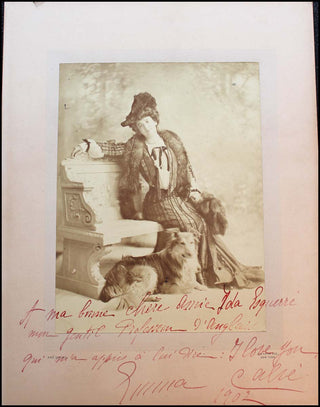 A ma bonne chère amie Ida Esquerré
mon gentil Professeur d'Anglais
qui m'a appris à lui dire: I love you
Emma Calvé
1902